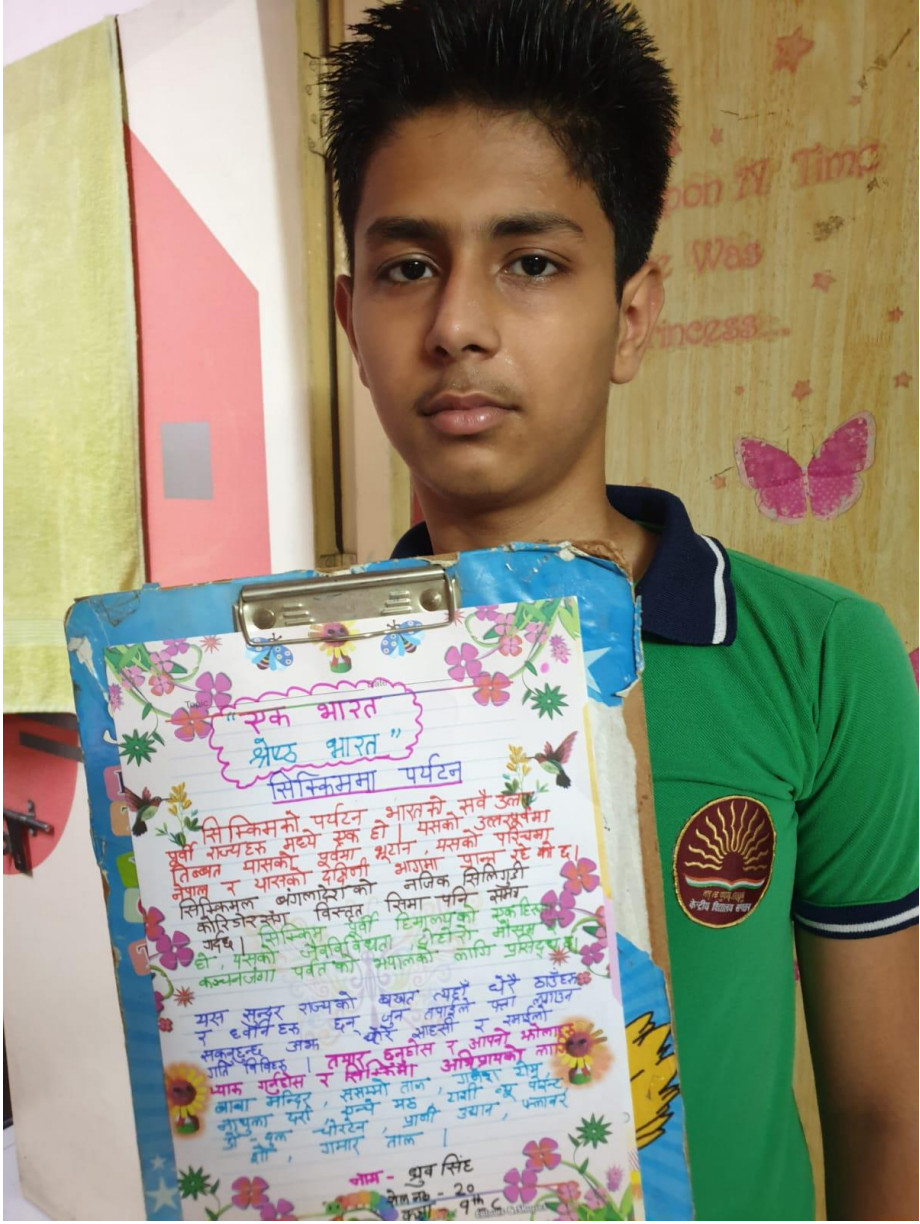 pon A Time
e Was
rincess...
"एक भारत
श्रेष्ठ भारत"
सिक्किममा पर्यटन
सिक्किमको पर्यटन भारतको सवै
पूर्वी राज्यहरू मध्ये एक हो । यसको उत्तरपूर्वमा
तिब्बत यासको पूर्वमा भूटान, यसको पश्चिमा
नेपाल र यासको दक्षिनी भागमा प्रान्त रहे को द ।
सिक्किमल बंगलादेशको नजिक सिलिगुडी
कोरिगोरसँग विस्तृत सिमा पनि
गर्दछ । सिक्किम पूर्वी हिमालयको
हो, यसको जैवविविधता, मौसम र
कञ्चनजंगा पर्वतको भूपालको लागि
यस सुन्दर राज्यको त्यहाँ धेरै ठाउँहरू
र छन् जुन तपाईले पत्ता लगाउन
सक्नुहुन्छ धेरै साहसी र रमाईलो
गति विधिहरू । तयार हुनुहोस र आफ्नो झोलाहरू
प्याक गर्नुहोस र सिक्किमा अभिप्रायको लागि
बाबा मन्दिर, ताल, गणेश
नाथुला पर्री, मठ, राबी भ्यू पोइन्ट
चोरटेन, प्रानी उद्यान, फ्लावर
शो, गमार ताल ।
नाम - ध्रुव सिंह
रोल नं० - 20
कक्षा - 9th C
केन्द्रीय विद्यालय संगठन